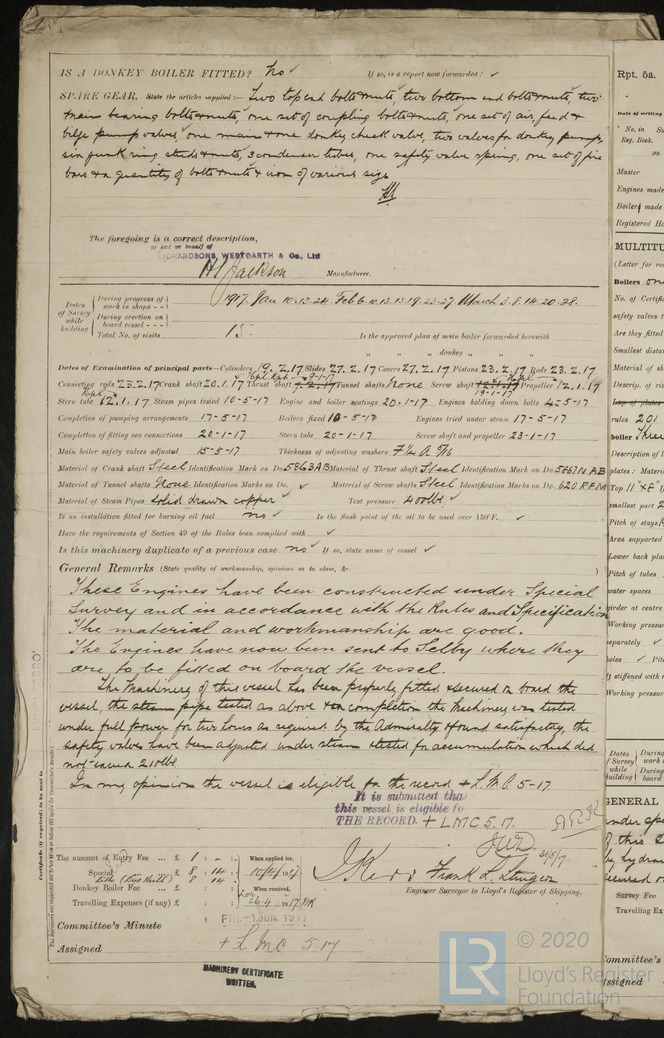 IS A DONKEY BOILER FITTED? No ✓ If so, is a report now forwarded? ✓
SPARE GEAR. State the articles supplied:— Two top end bolts & nuts, two bottom end bolts & nuts, two
main bearing bolts & nuts, one set of coupling bolts & nuts, one set of air, feed &
bilge pump valves, one main & one donkey check valve, two valves for donkey pump,
six junk ring studs & nuts, 3 condenser tubes, one safety valve spring, one set of fire
bars & a quantity of bolts & nuts & iron of various size
The foregoing is a correct description,
or and on behalf of
RICHARDSONS, WESTGARTH & Co., Ltd
Jackson Manufacturer.
Dates of Survey while building
During progress of work in shops - - 1917. Jan 10.13.24. Feb 6.10.13.15.19.23.27. March 3.8.14.20.28.
During erection on board vessel - - -
Total No. of visits 15. Is the approved plan of main boiler forwarded herewith
" " " donkey " "
Dates of Examination of principal parts—Cylinders 19.2.17 Slides 27.2.17 Covers 27.2.17 Pistons 23.2.17 Rods 23.2.17
Connecting rods 23.2.17 Crank shaft 20.1.17 Thrust shaft Tunnel shafts None Screw shaft 19-1-17 Propeller 12.1.17
Stern tube 12.1.17 Steam pipes tested 10-5-17 Engine and boiler seatings 20-1-17 Engines holding down bolts 4-5-17
Completion of pumping arrangements 17-5-17 Boilers fixed 10-5-17 Engines tried under steam 17-5-17
Completion of fitting sea connections 20-1-17 Stern tube 20-1-17 Screw shaft and propeller 23-1-17
Main boiler safety valves adjusted 15-5-17 Thickness of adjusting washers
Material of Crank shaft Steel Identification Mark on Do. 5863 AB Material of Thrust shaft Steel Identification Mark on Do. 5867N AB
Material of Tunnel shafts None Identification Marks on Do. ✓ Material of Screw shafts Steel Identification Marks on Do. 620 RFM
Material of Steam Pipes Solid drawn copper ✓ Test pressure 400 lbs. ✓
Is an installation fitted for burning oil fuel no ✓ Is the flash point of the oil to be used over 150°F. ✓
Have the requirements of Section 49 of the Rules been complied with ✓
Is this machinery duplicate of a previous case no ✓ If so, state name of vessel ✓
General Remarks (State quality of workmanship, opinions as to class, &c. )
These Engines have been constructed under Special
Survey and in accordance with the Rules and Specification
The material and workmanship are good.
The Engines have now been sent to Selby where they
are to be fitted on board the vessel.
The Machinery of this vessel has been properly fitted & secured on board the
vessel, the steam pipe tested as above & on completion the Machinery was tested
under full power for two hours as required by the Admiralty & found satisfactory, the
safety valves have been adjusted under steam & tested for accumulation which did
not exceed 210 lbs.
In my opinion the vessel is eligible for the record + L.M.C. 5-17
It is submitted that
this vessel is eligible for
THE RECORD. + LMC 5.17.
31/5/17
The amount of Entry Fee ... £ 1 : - : When applied for,
Special ... £ 8 : 14 :
Donkey Boiler Fee ... £ : : When received,
Travelling Expenses (if any) £ : : 26.4.1917
Frank L. Sturgeon
Engineer Surveyor to Lloyd's Register of Shipping.
Committee's Minute FRI. 1 JUN. 1917
Assigned + L.M.C. 5.17
MACHINERY CERTIFICATE
WRITTEN.
Certificate (if required) to be sent to
Rpt. 5a.
Date of writing
No. in
Reg. Book.
on
Master
Engines made
Boilers made
Registered Ho
MULTITU
(Letter for re
Boilers
No. of Certific
safety valves t
Are they fitted
Smallest distan
Material of sh
Descrip. of riv
Lap of plates
rules 201
boiler Three
Description of l
plates : Materi
smallest part
Pitch of stays
Area supported
Lower back plat
Pitch of tubes
water spaces
girder at centre
Working pressur
separately
holes ✓ Pit
If stiffened with r
Working pressure
Dates of Survey while building
During work
During board
GENERAL
Survey Fee
Travelling Ex
Committee's
Assigned
LR © 2020
Lloyd's Register
Foundation